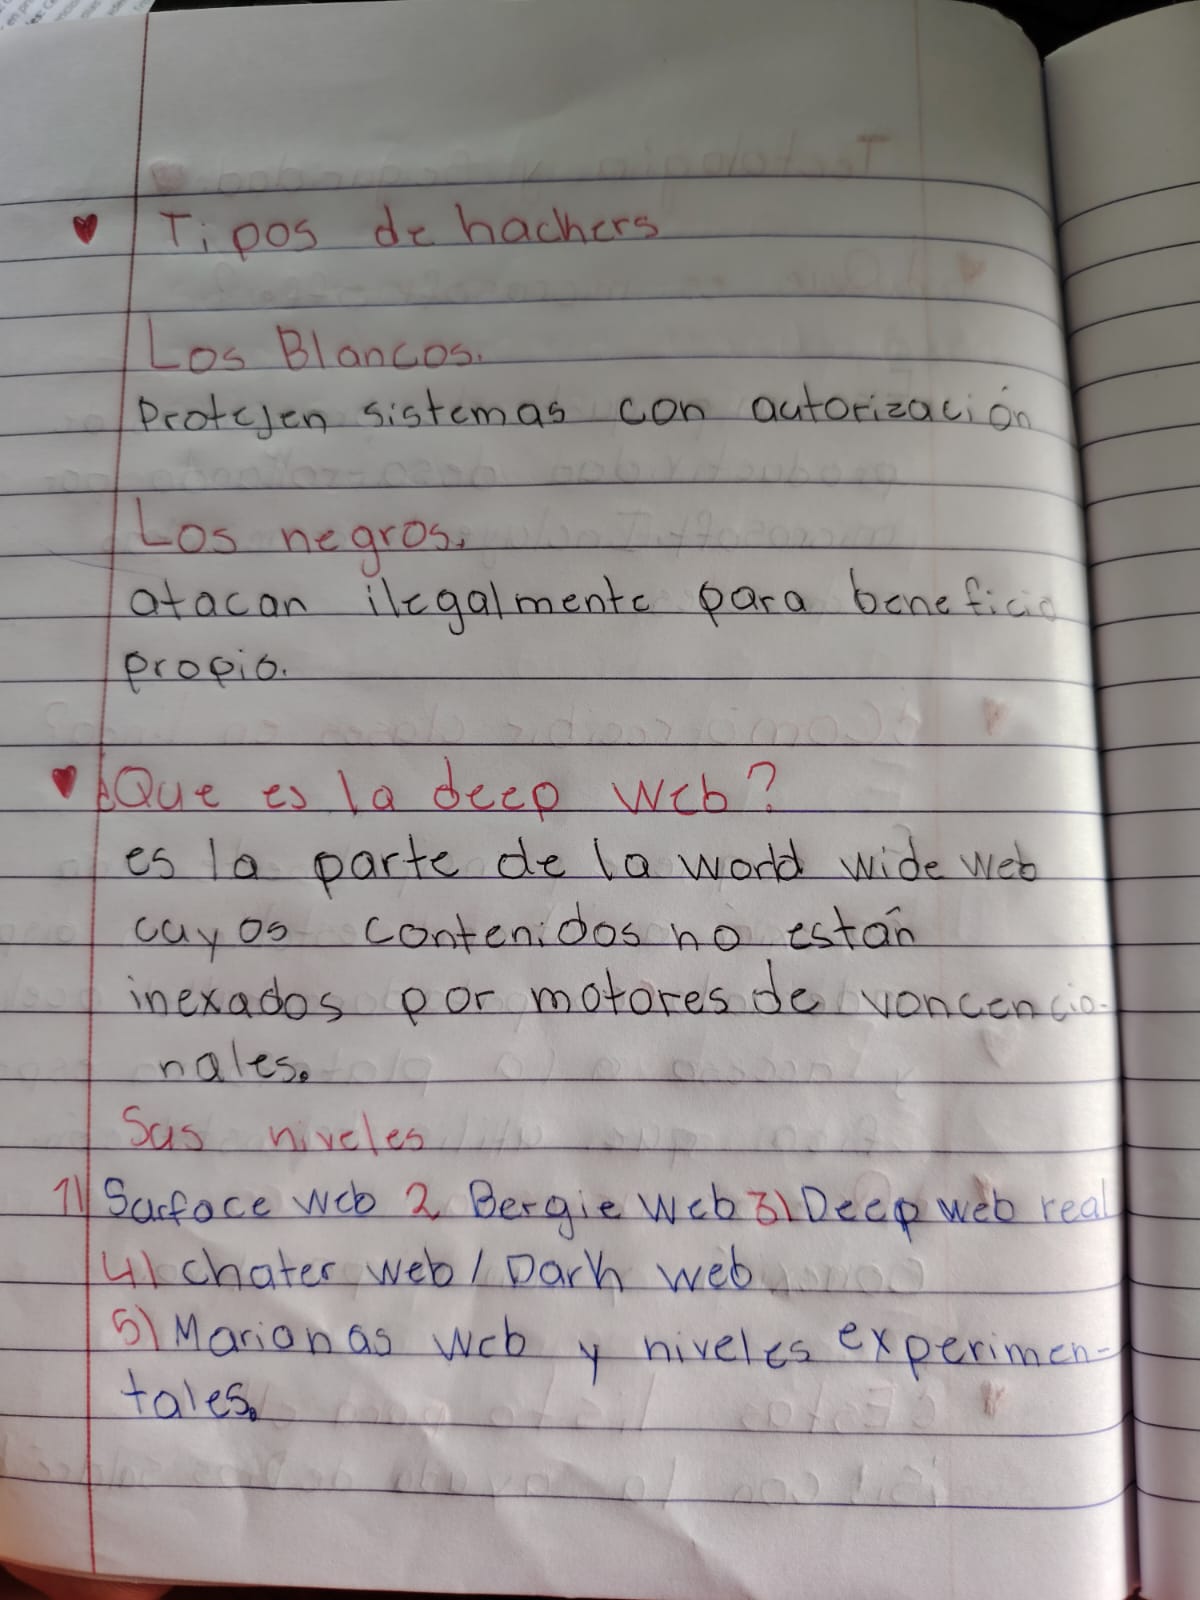 ♥ Tipos de hackers
Los Blancos.
Protejen sistemas con autorización
Los negros.
atacan ilegalmente para beneficio
propio.
♥ ¿Que es la deep web?
es la parte de la world wide web
cuyos contenidos no están
inexados por motores de voncencio-
nales.
Sus niveles
1) Surface web 2 Bergie web 3) Deep web real
4) chater web / Dark web
5) Marianas web y niveles experimen-
tales.